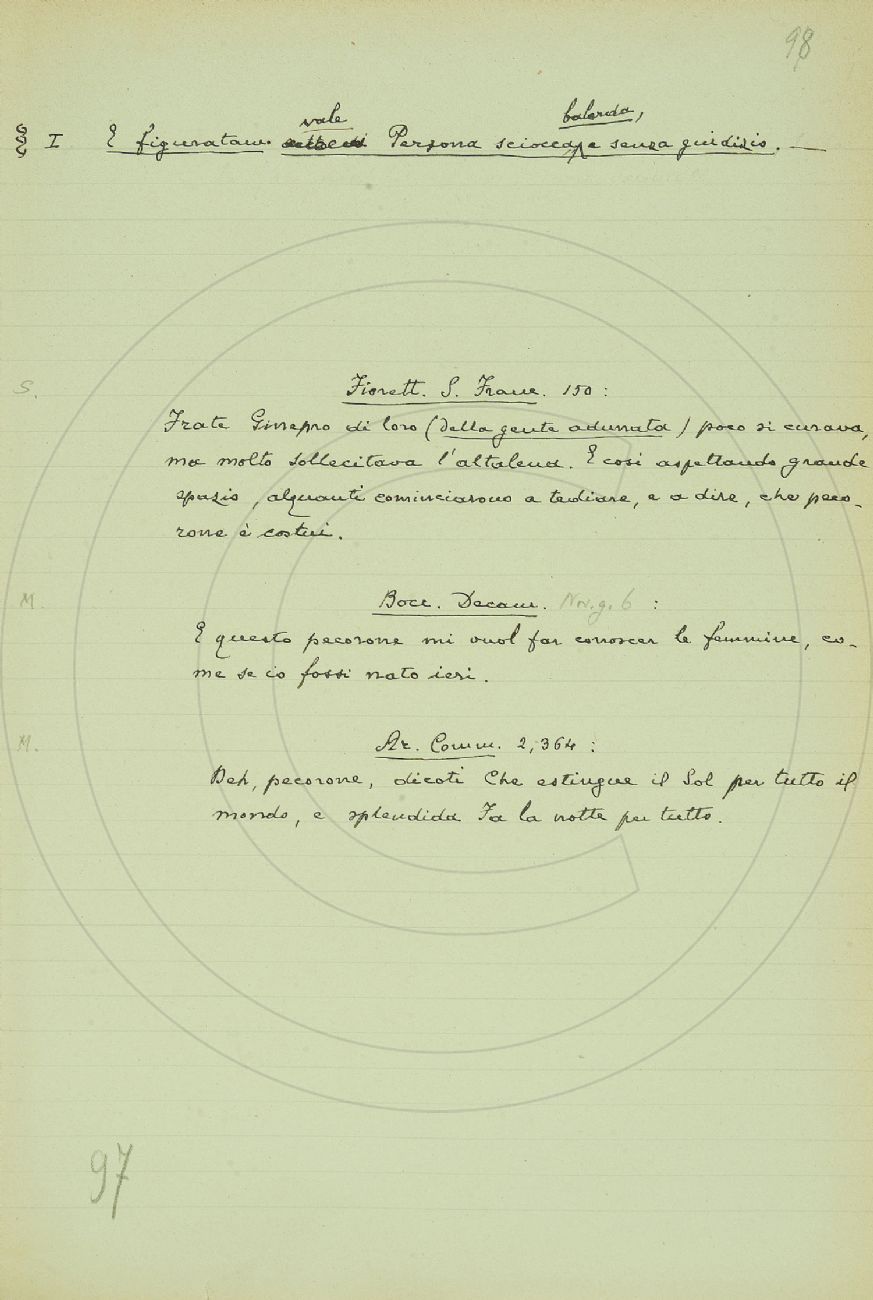 98
§ I E figuratam. vale Persona sciocca, balorda, e senza giudizio. —
S. Fiorett. S. Franc. 150 :
Frate Ginepro di loro (della gente adunata) poco si curava,
ma molto sollecitava l'altalena. E così aspettando grande
spazio, alquanti cominciarono a tediare, e a dire, che peco-
rone è costui.
M. Bocc. Decam. Nov. g. 6 :
E questo pecorone mi vuol far conoscer le femmine, co-
me se io fossi nato ieri.
M. Ar. Comm. 2, 364 :
Deh, pecorone, dicoti Che estingue il Sol per tutto il
mondo, e splendida Fa la notte per tutto.
97